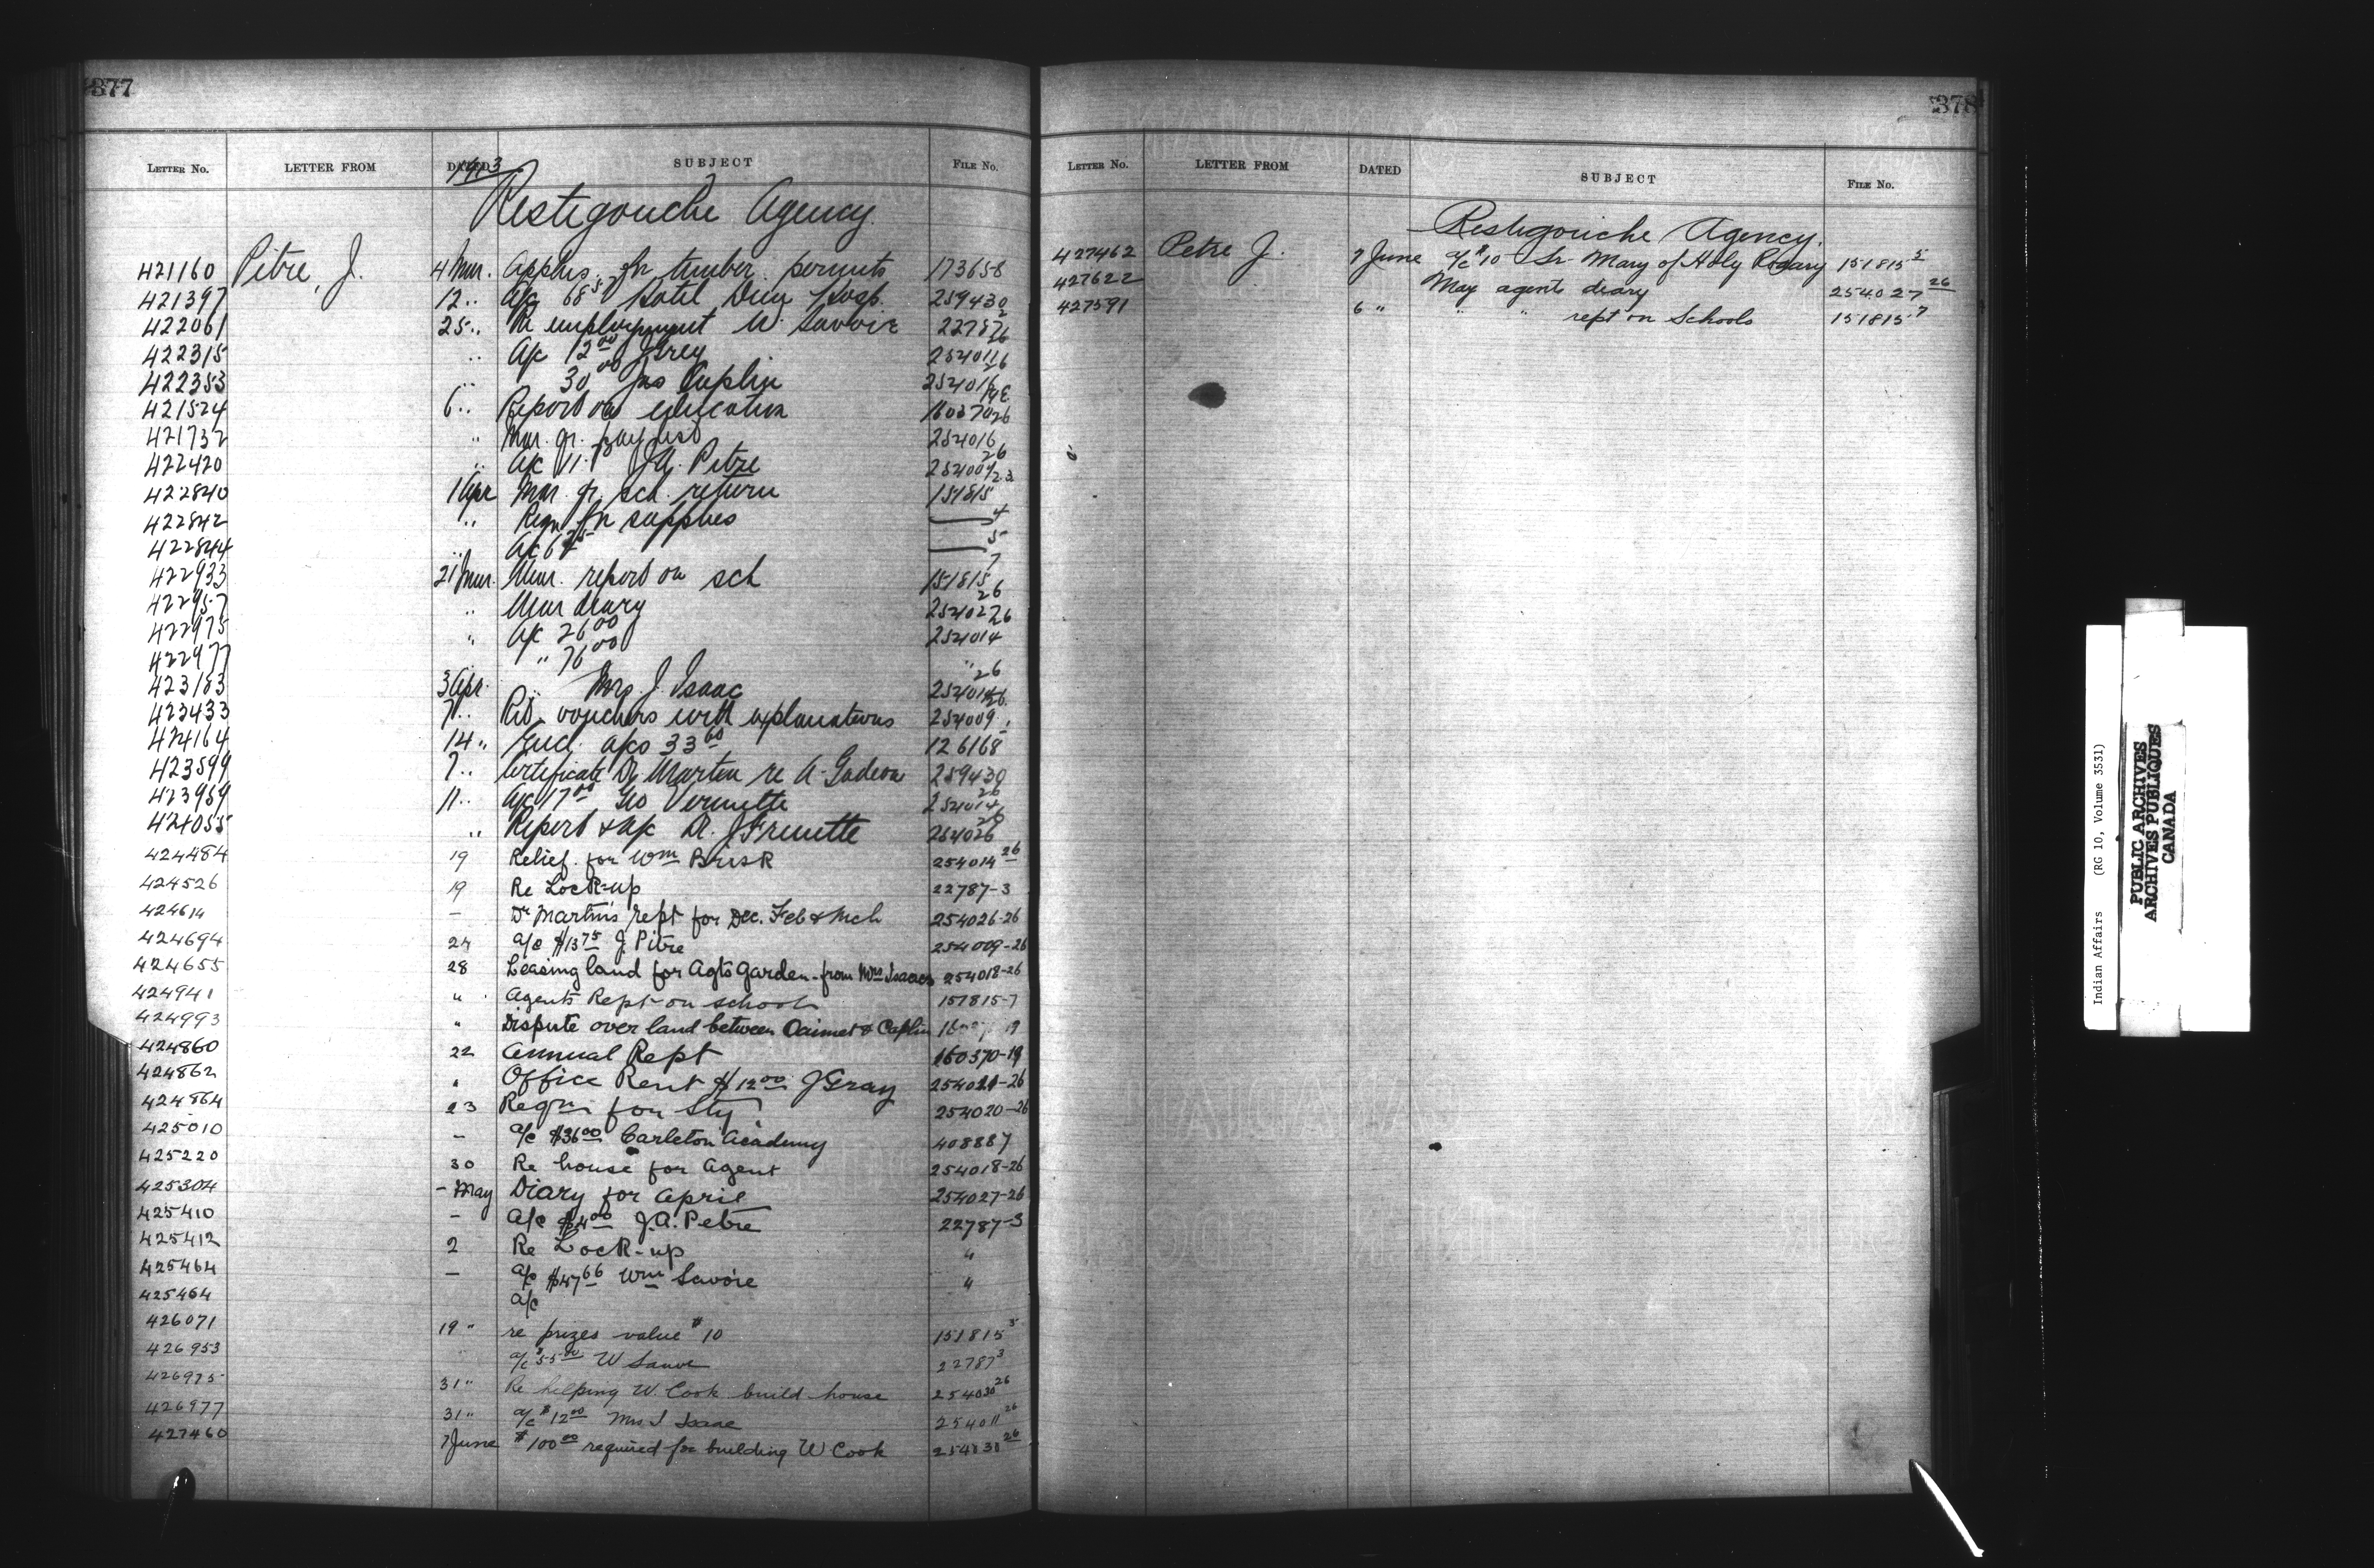 377
LETTER NO. LETTER FROM DATED SUBJECT FILE NO.
Restigouche Agency
421160 Pitre, J. 4 Mar. Applns. for timber permits 173658
421397 12 " A/c 68 Hotel Dieu Hosp. 259430
422061 25 " Re employment W. Savoie 22787
422315 " A/c 12 00 J Grey
422353 " 30 00 Jas Caplin
421524 6 " Report on education
421732 " Mar. qr. pay list 254016
422420 " A/c 11. J.A. Petre 254009
422840 1 Apr Mar. qr. sch. return 151815
422842 " Reqn for supplies 4
422844 " A/c 5
422933 21 Mar. Mar. report on sch 151815 7
422957 " Mar diary 254027 26
422975 " A/c 26 00 254014 26
422977 " 76 00 "
423183 3 Apr. " Mrs. J. Isaac
423433 7 " Rtd vouchers with explanations 254009
424164 14 " Encl. a/cs 33 60 126168
423599 7 " Certificate Dr Martin re A. Gedeon 259430
423959 11 " A/c 17 00 Geo Vermette 254014 26
424055 " Report & a/c Dr. 254026 26
424484 19 Relief for Wm Brisk 254014 26
424526 19 Re Lock-up 22787-3
424614 – Dr Martin's rept for Dec. Feb & Mch 254026-26
424694 24 a/c $13 75 J. Pitre 254009-26
424655 28 Leasing land for Agts Garden - from Mrs Isaacs 254018-26
424941 " Agents Rept on schools 151815-7
424993 " Dispute over land between & Caplin
424860 22 Annual Rept 160370-19
424862 " Office Rent $12 00 J Gray -26
424864 23 Reqn for Sty 254020-26
425010 – a/c $36 00 Carleton Academy 408887
425220 30 Re house for Agent 254018-26
425304 – May Diary for April 254027-26
425410 – A/c $4 00 J.A. Petre 22787-3
425412 2 Re Lock-up "
425464 – a/c $47 66 Wm Savoie "
425464 a/c
426071 19 " re prizes value $10 151815 5
426953 a/c $55 00 W 22787 3
426975 31 " Re helping W. Cook build house 254030 26
426977 31 " a/c $12 00 Mrs J Isaac 254011 26
427460 7 June $100 00 required for building W Cook 254030 26
378
LETTER NO. LETTER FROM DATED SUBJECT FILE NO.
Restigouche Agency.
427462 Petre J. 7 June a/c $10 Sr Mary of Holy Rosary 151815 5
427622 May agents diary 254027 26
427591 6 " " " rept on Schools 151815 7
Indian Affairs (RG 10, Volume 3531)
PUBLIC ARCHIVES
ARCHIVES PUBLIQUES
CANADA